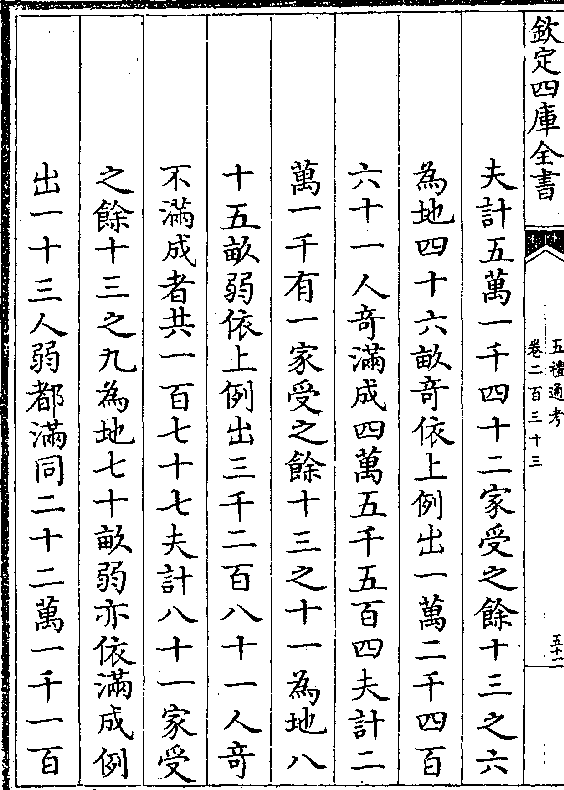 欽定四庫全書
五禮通考
卷二百三十三
五十一
夫計五萬一千四十二家受之餘十三之六
為地四十六畝竒依上例出一萬二千四百
六十一人竒滿成四萬五千五百四夫計二
萬一千有一家受之餘十三之十一為地八
十五畝弱依上例出三千二百八十一人竒
不滿成者共一百七十七夫計八十一家受
之餘十三之九為地七十畝弱亦依滿成例
出一十三人弱都滿同二十二萬一千一百